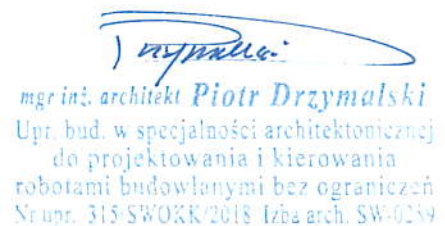 mgr inż. architekt Piotr Drzymalski
Upr. bud. w specjalności architektonicznej
do projektowania i kierowania
robotami budowlanymi bez ograniczeń
Nr upr. 315/SWOKK/2018 Izba arch. SW-0259